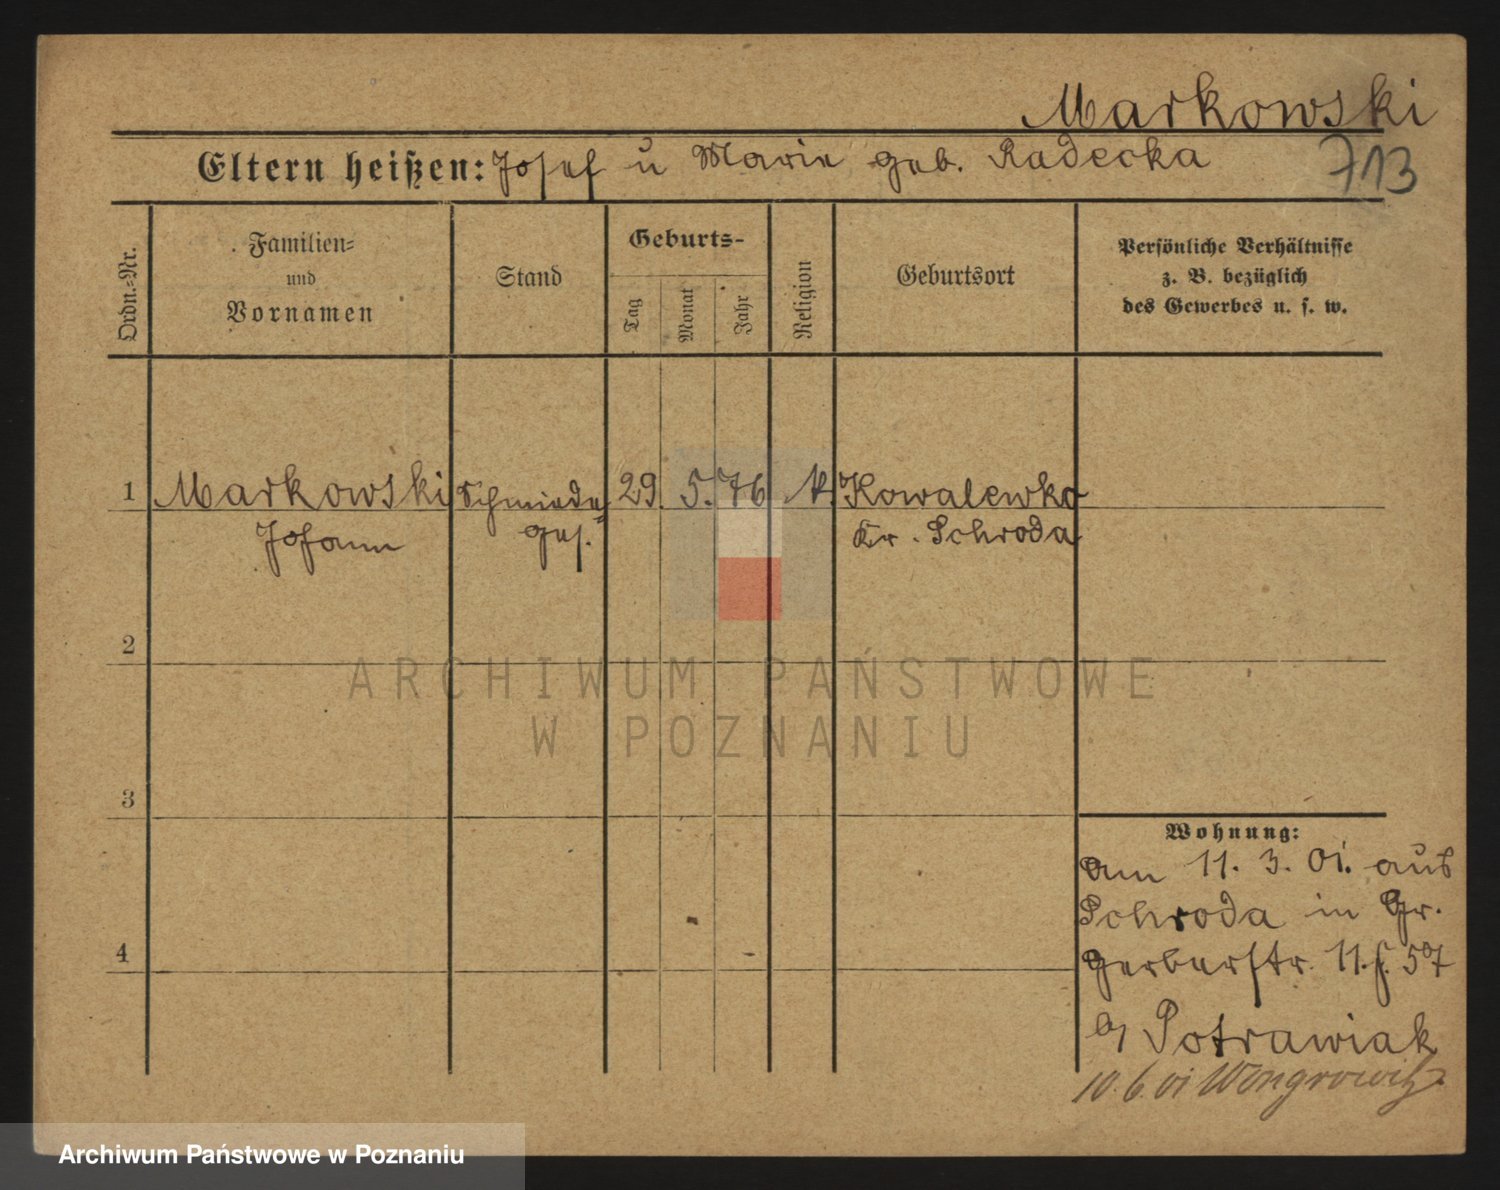 Markowski
Eltern heißen: Josef u Marie geb. Radecka
713
Ordn.-Nr.
Familien-
und
Vornamen
Stand
Geburts-
Tag
Monat
Jahr
Religion
Geburtsort
Persönliche Verhältnisse
z. B. bezüglich
des Gewerbes u. s. w.
1 Markowski Schmiede 29. 5. 76 k. Kowalewko
Johann ges. Kr. Schroda
2
ARCHIWUM PAŃSTWOWE
W POZNANIU
3
Wohnung:
am 11. 3. 01. aus
Schroda in Gr.
4
Gerberstr. 11. 57
b/ Potrawiak
10.6.01 Wongrowitz
Archiwum Państwowe w Poznaniu